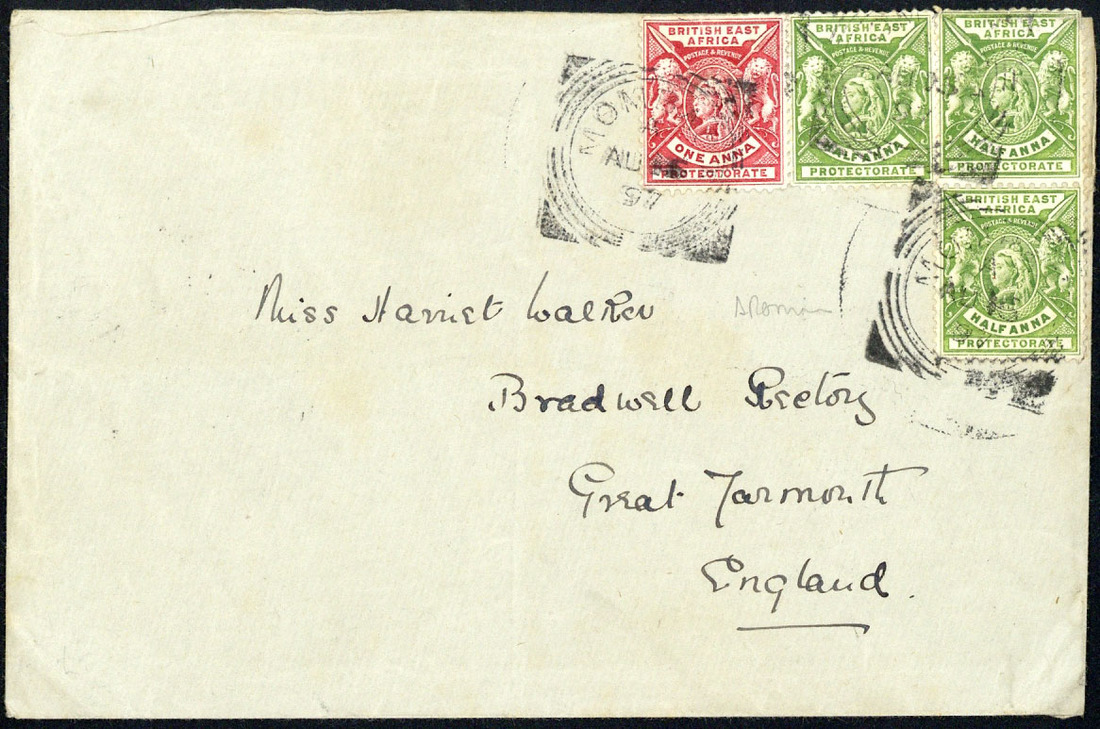 BRITISH EAST AFRICA
POSTAGE & REVENUE
ONE ANNA
PROTECTORATE
BRITISH EAST AFRICA
POSTAGE & REVENUE
HALF ANNA
PROTECTORATE
BRITISH EAST AFRICA
POSTAGE & REVENUE
HALF ANNA
PROTECTORATE
BRITISH EAST AFRICA
POSTAGE & REVENUE
HALF ANNA
PROTECTORATE
AU
97
Miss Harriet Walker
Bradwell Rectory
Great Yarmouth
England.